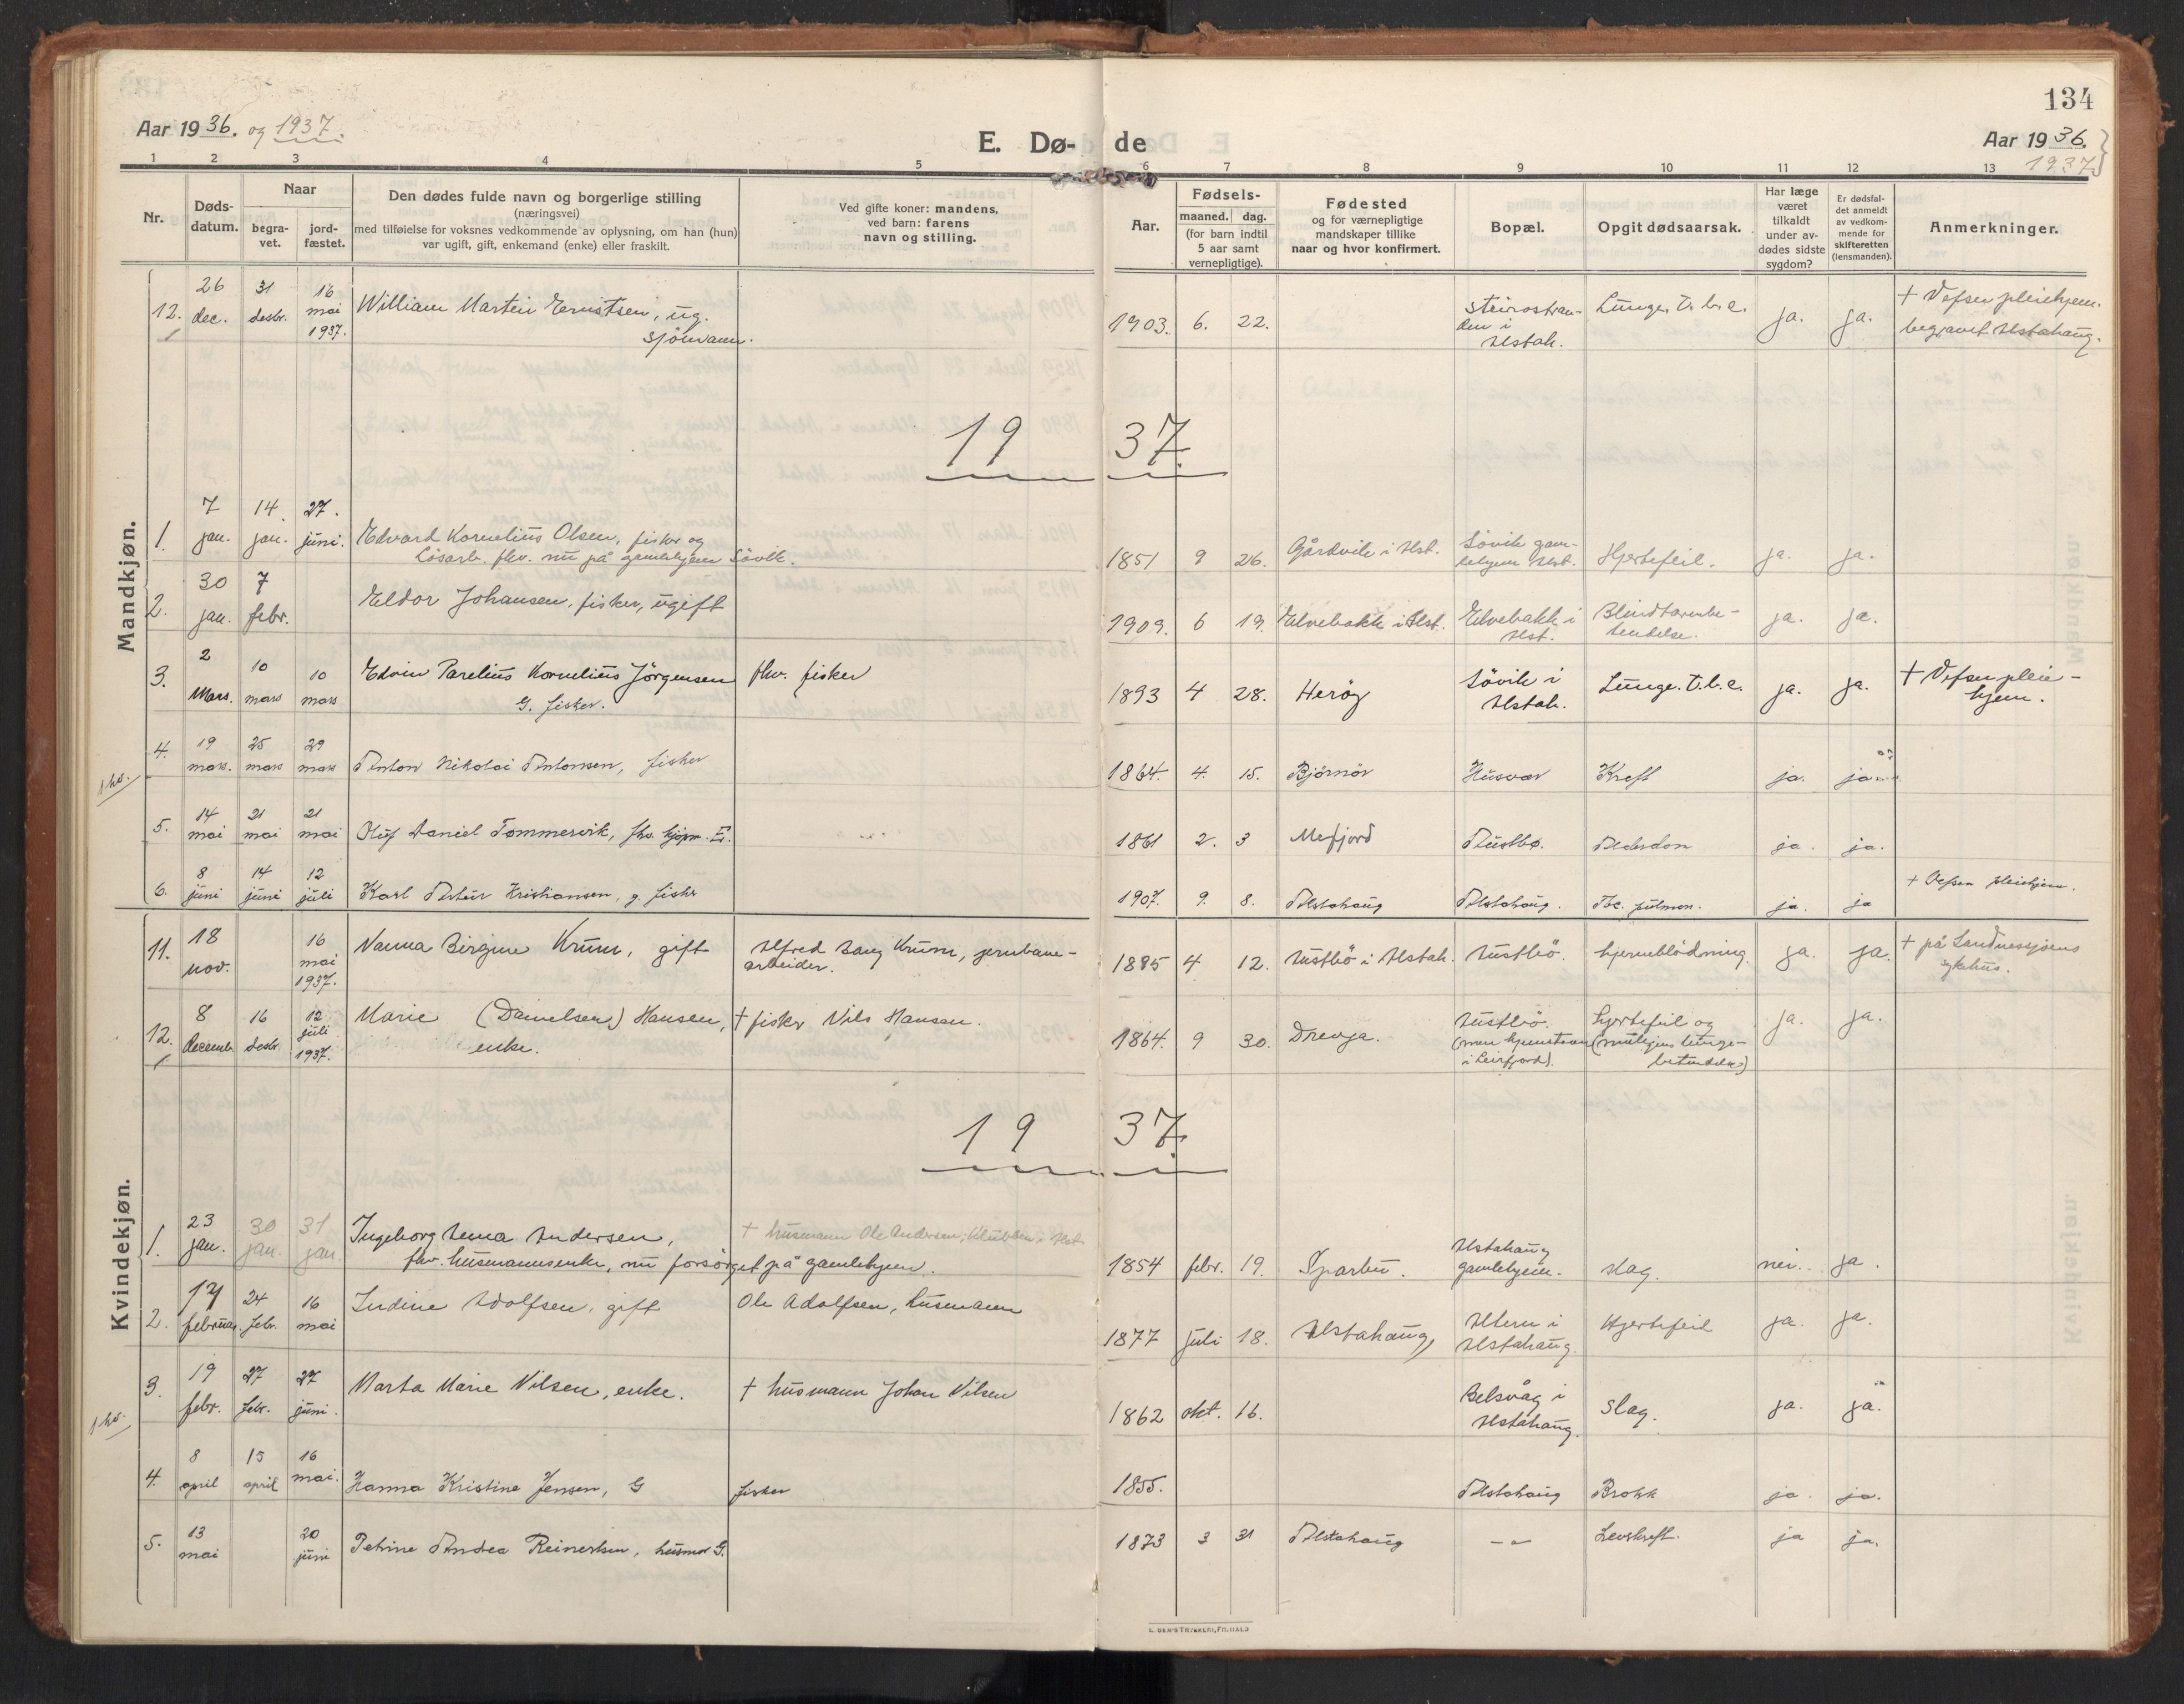 134
Aar 1936. og 1937.
E. Dø-de
Aar 1936.
1937.
1 2 3 4 5 6 7 8 9 10 11 12 13
Nr.
Døds-
datum.
Naar
begra-
vet.
jord-
fæstet.
Den dødes fulde navn og borgerlige stilling
(næringsvei)
med tilføielse for voksnes vedkommende av oplysning, om han (hun)
var ugift, gift, enkemand (enke) eller fraskilt.
Ved gifte koner: mandens,
ved barn: farens
navn og stilling.
Aar.
Fødsels-
maaned. dag.
(for barn indtil
5 aar samt
vernepligtige).
Fødested
og for værnepligtige
mandskaper tillike
naar og hvor konfirmert.
Bopæl.
Opgit dødsaarsak.
Har læge
været
tilkaldt
under av-
dødes sidste
sygdom?
Er dødsfal-
det anmeldt
av vedkom-
mende for
skifteretten
(lensmanden).
Anmerkninger.
Mandkjøn.
12. 26 dec. 31 desbr. 16 mai 1937. William Martin Ernstsen, ug.
sjömann.
1903. 6. 22.
den i
Alstah.
Lunge. t.b.c. ja. ja. + Vefsn pleiehjem.
begravet Alstahaug.
1937.
1. 7 jan. 14. jan. 27. juni. Edvard Kornelius Olsen, fisker og
Lösarb. fhv. nu på gamlehjem Sövik.
1851 9 26. Gårdvik i Alst. Sövik gam-
lehjem Alst. Hjertefeil. ja. ja.
2. 30 jan. 7 febr. Eldor Johansen, fisker, ugift
1909. 6 19. Elvebakk i Alst. Elvebakk i
Alst. Blindtarmbe-
tendelse. ja. ja.
3. 2 Mars. 10 mars 10 mars Edvin Parelius Kornelius Jörgensen fhv. fisker
G. fisker.
1893 4 28. Heröy Sövik i
Alstah. Lunge. T.b.c. ja. ja. + Vefsn pleie-
hjem.
4. 19 mars. 25 mars 29 mars Anton Nikolai Antonsen, fisker
1864. 4. 15. Björnör Husvær Kreft ja. ja
5. 14 mai 21 mai 21 mai Oluf Daniel Tommervik, fhv. kjøpm. E.
1861 2. 3 Mefjord Austbø. ja. ja.
6. 8 juni 14 juni 12 juli Karl Artur Kristiansen, g. fisker
1907. 9. 8. Alstahaug Alstahaug. Tbc. pulmon. ja. ja + Vefsn pleiehjem.
Kvindekjøn.
11. 18 nov. 16 mai 1937. Nanna Birgine Krum, gift Alfred Bang Krum, jernbane-
arbeider.
1885 4 12. Austbö i Alstah. Austbö. hjerneblödning. ja. ja. + på Sandnessjøens
sykehus.
12. 8 Decembr 16 desbr 12 juli 1937. Marie (Danielsen) Hansen, + fisker Nils Hansen.
enke.
1864. 9 30. Drevja. Austbö.
i Leirfjord). hjertefeil og
(muligens lunge-
betendelse) ja. ja.
1937.
1. 23 jan. 30 jan. 31 jan. Ingeborg Anna Andersen, + husmann Ole Andersen, Klubben, Alst.
fhv. husmannsenke, nu forsörget på gamlehjem.
1854 febr. 19. Sparbu. Alstahaug
gamlehjem. slag. nei. ja.
2. 17 februar. 24 febr. 16 mai Indine Adolfsen, gift Ole Adolfsen, husmann
1877 juli 18. Alstahaug, Alstahaug. Hjertefeil ja. ja.
3. 19 febr. 27 febr. 27 juni. Marta Marie Nilsen, enke. + husmann Johan Nilsen
1862 okt. 16. Belsvåg i
Alstahaug. slag. ja. ja.
4. 8 april 15 april 16 mai. Hanna Kristine Jensen, G fisker
1855. Alstahaug Brokk ja. ja.
5. 13 mai 20 juni Petrine Andrea Reinertsen, husmor G.
1873 3 31 Alstahaug -"- Leverkreft. ja ja.